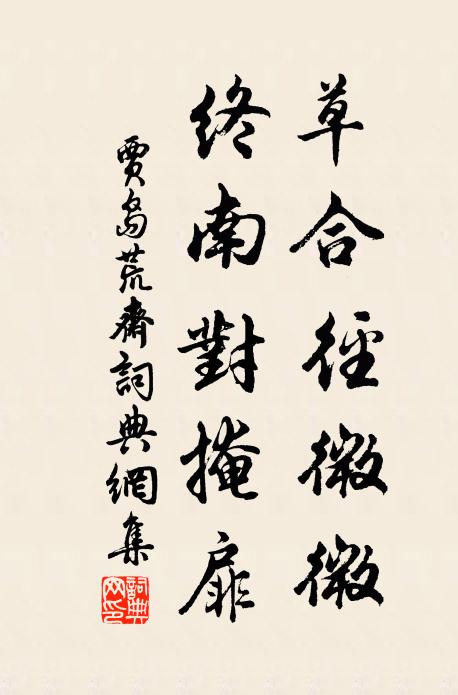 草合徑微微
終南對掩扉
賈島荒齋詞典網集
詞典網印